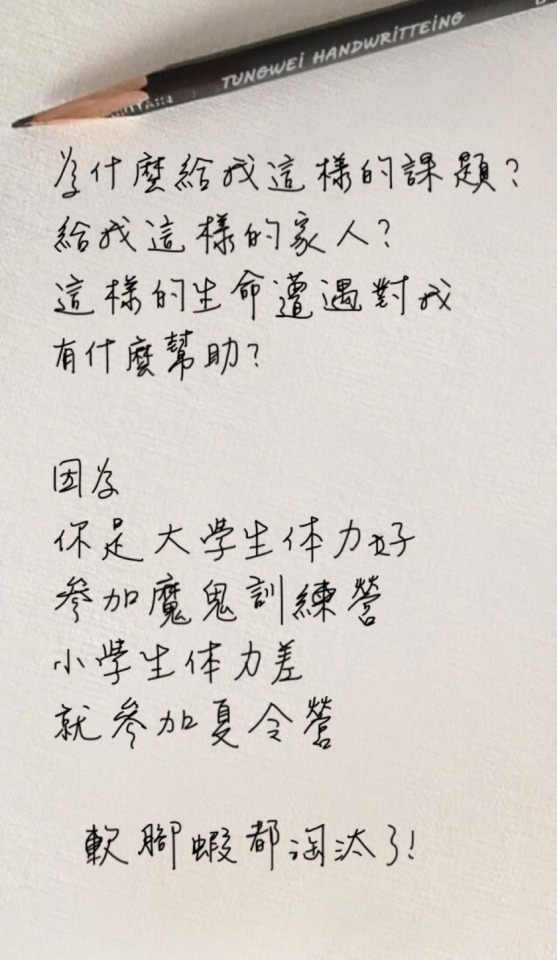 TUNGWEI HANDWRITTEING
為什麼給我這樣的課題?
給我這樣的家人?
這樣的生命遭遇對我
有什麼幫助?
因為
你是大學生体力好
參加魔鬼訓練營
小學生体力差
就參加夏令營
軟腳蝦都淘汰了!